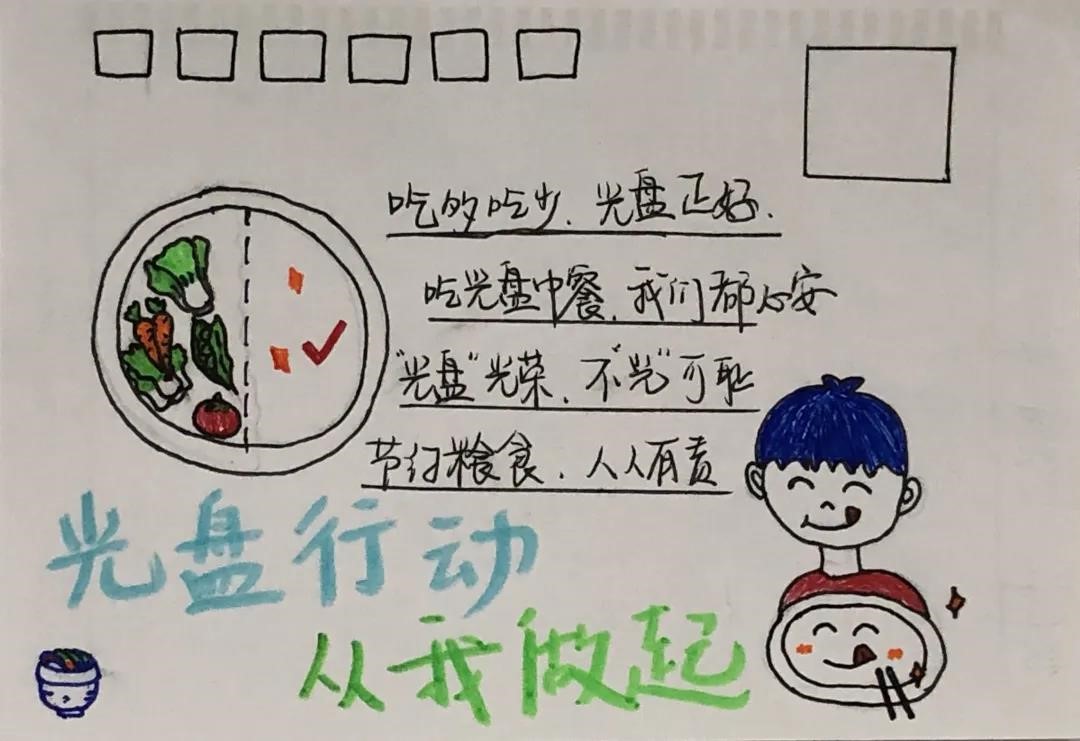 吃的吃少、光盘正好、
吃光盘中餐、我们都心安
"光盘"光荣、不"光"可耻
节约粮食、人人有责
光盘行动
从我做起